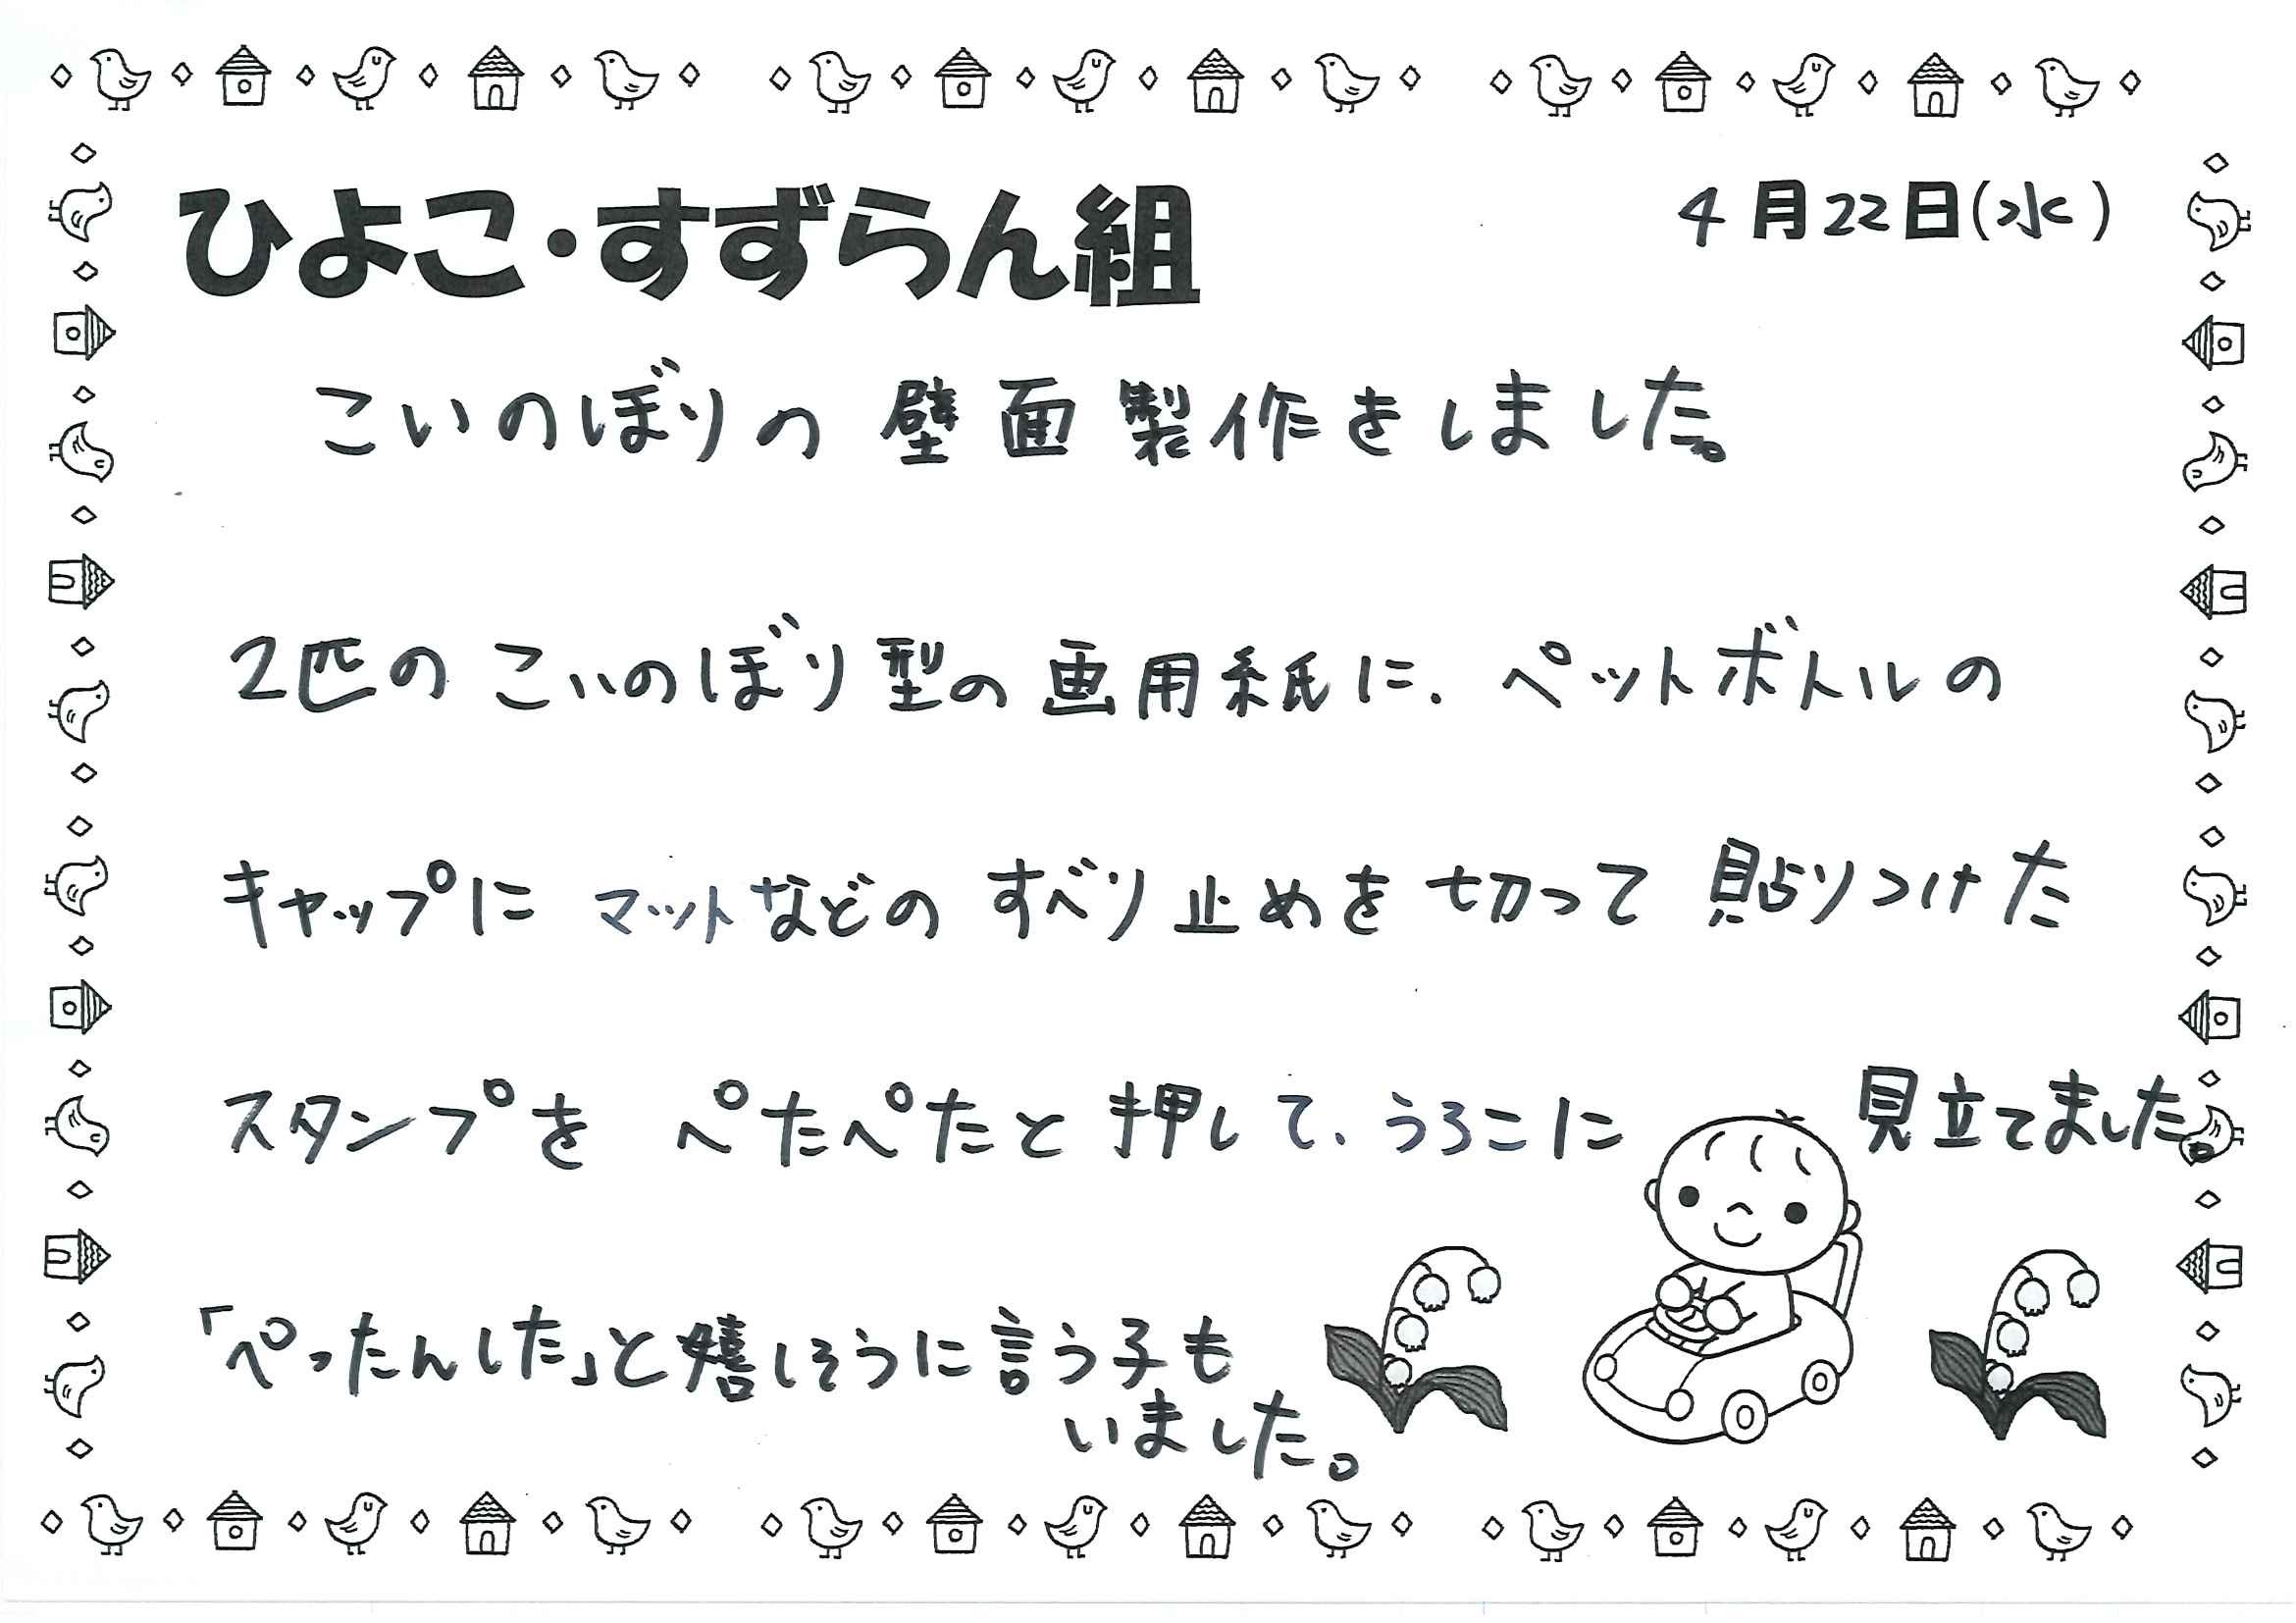 ひよこ・すずらん組
4月22日(水)
こいのぼりの壁面製作をしました。
2匹のこいのぼり型の画用紙に、ペットボトルの
キャップにマットなどのすべり止めを切って貼りつけた
スタンプをぺたぺたと押して、うろこに見立てました。
「ぺったんした」と嬉しそうに言う子も
いました。